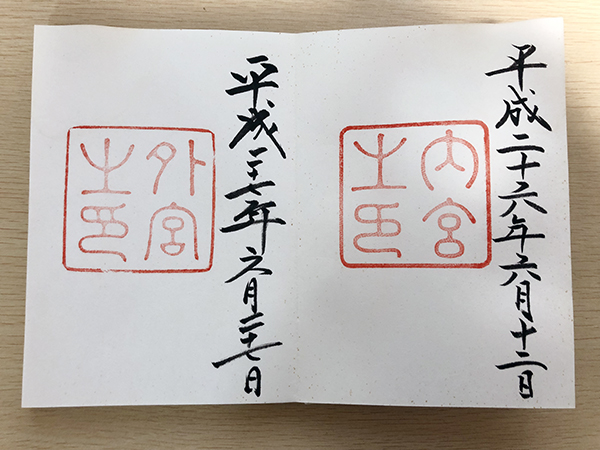 平成二十六年六月十二日
内宮
之印
平成二十七年六月二十七日
外宮
之印